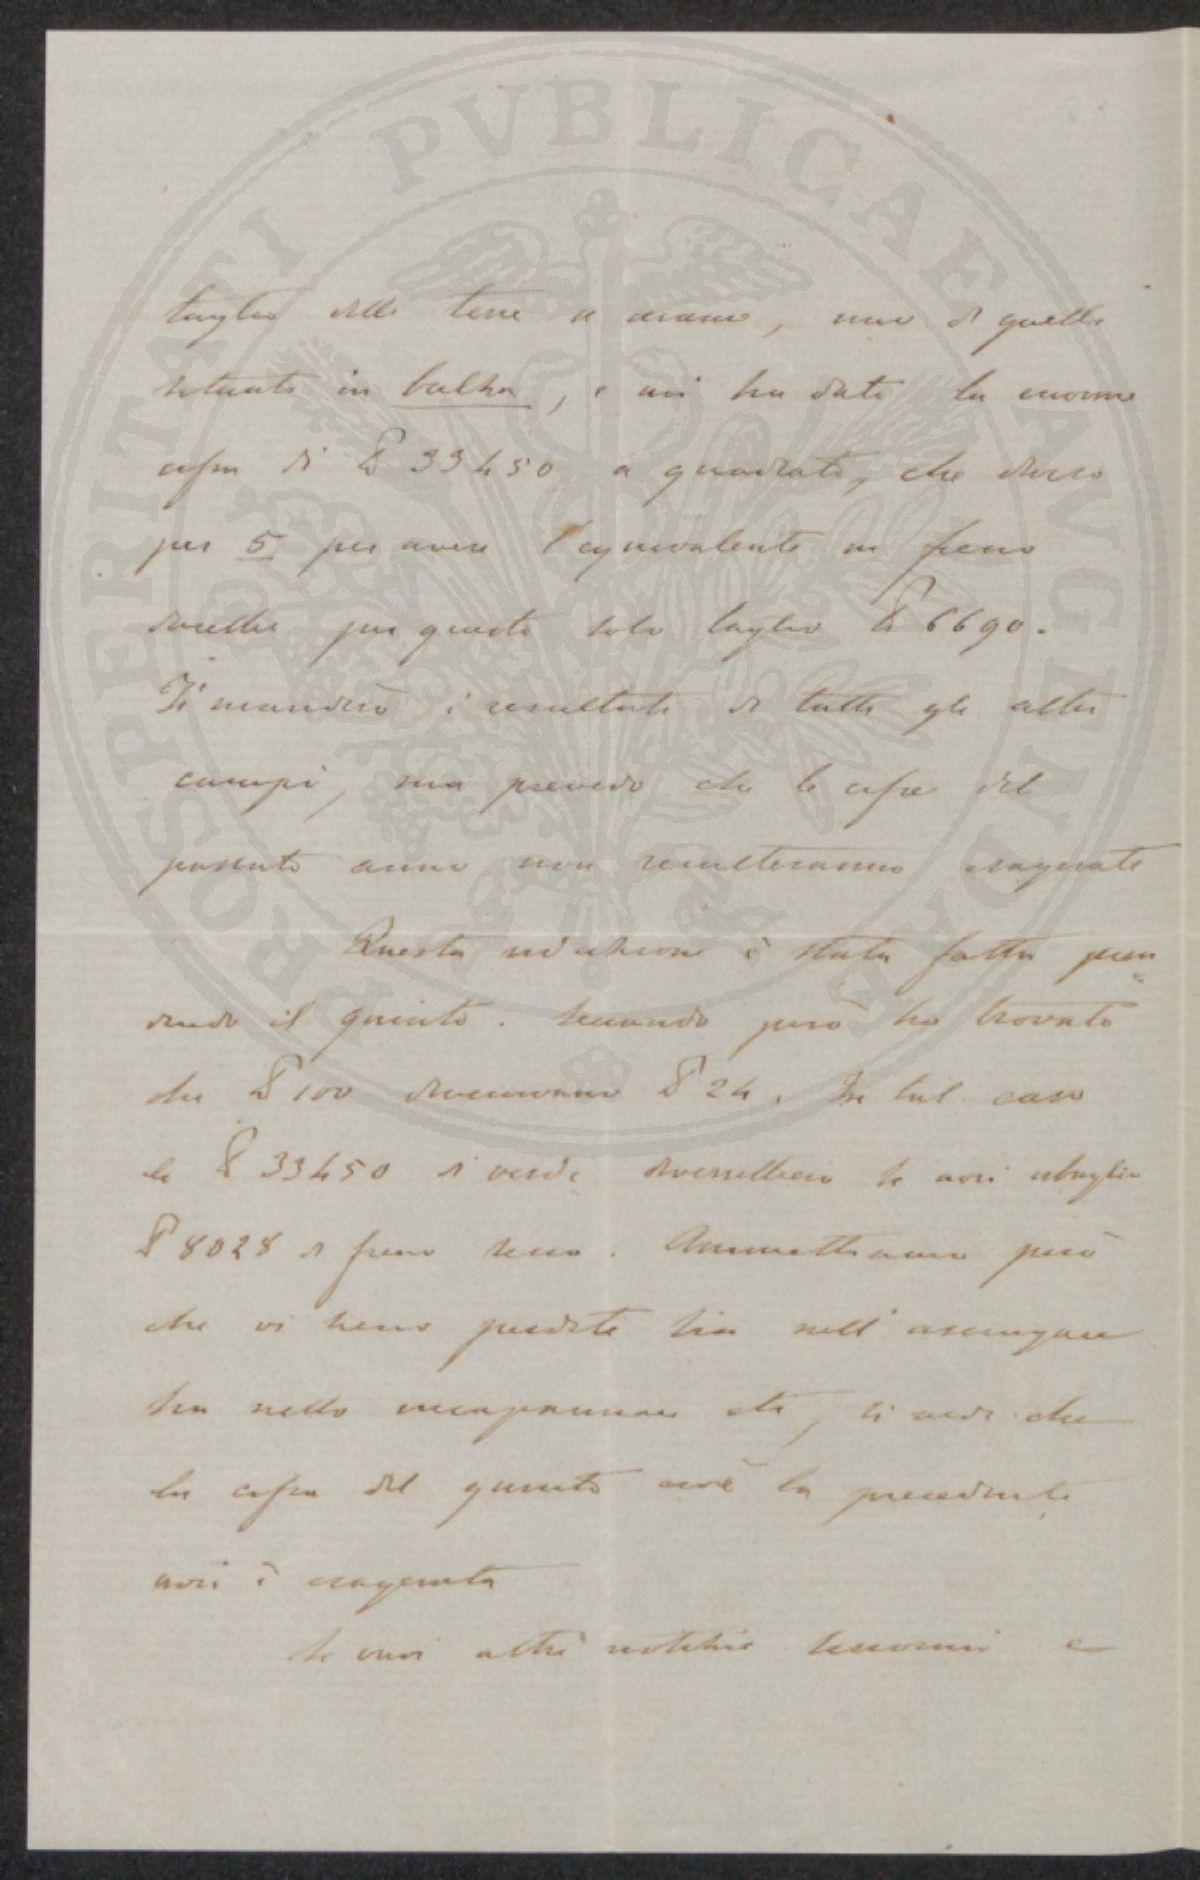 PROSPERITATI PVBLICAE AVGENDAE
taglio delle terre a mano, uno di quelli
situati in balza, e mi ha dato la enorme
cifra di ℔ 33450 a quadrato, che diviso
per 5 per avere l'equivalente in fieno
darebbe per questo solo taglio ℔ 6690.
Ti manderò i resultati di tutti gli altri
campi, ma prevedo che le cifre del
passato anno non resulteranno esagerate
Questa riduzione è stata fatta pren=
dendo il quinto. Seccando però ho trovato
che ℔ 100 divenivano ℔ 24. In tal caso
le ℔ 33450 di verde sarebbero
℔ 8028 di fieno secco. Ammettiamo però
che vi sieno perdite sia nell'asciugare
sia nello accapannare etc, si vede che
la cifra del quinto cioè la precedente
non è esagerata
Se vuoi altre notizie scrivimi e